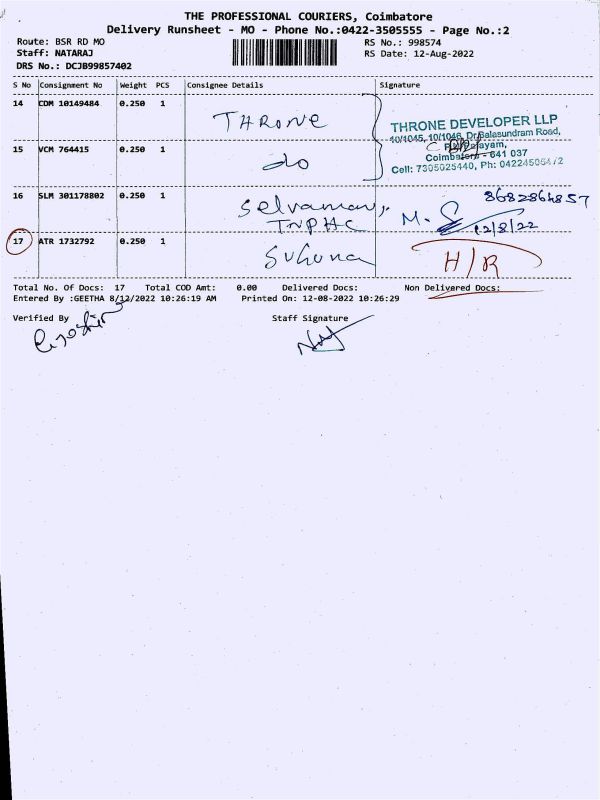 THE PROFESSIONAL COURIERS, Coimbatore
Delivery Runsheet - MO - Phone No.:0422-3505555 - Page No.:2
Route: BSR RD MO
Staff: NATARAJ
DRS No.: DCJB99857402
RS No.: 998574
RS Date: 12-Aug-2022
S No Consignment No Weight PCS Consignee Details Signature
14 CDM 10149484 0.250 1 THRONE
THRONE DEVELOPER LLP
10/1045, 10/1046, Dr.Balasundram Road,
15 VCM 764415 0.250 1 do
Coimbatore - 641 037
Cell: 7305025440, Ph: 04224506472
16 SLM 301178802 0.250 1 Selvamani,
TNPHC
8682864857
M. S
12/8/22
17 ATR 1732792 0.250 1 Suguna H/R
Total No. Of Docs: 17 Total COD Amt: 0.00 Delivered Docs: Non Delivered Docs:
Entered By :GEETHA 8/12/2022 10:26:19 AM Printed On: 12-08-2022 10:26:29
Verified By Staff Signature